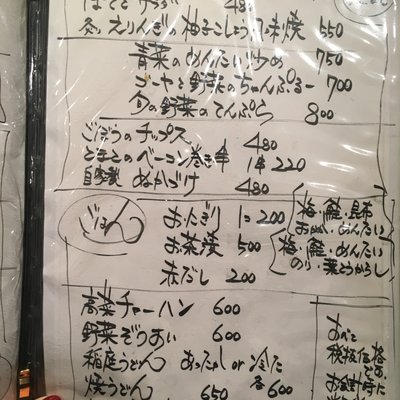 ポテトサラダ 480
えりんぎの柚子こしょう味焼 550
青菜のめんたい炒め 750
ゴーヤと野菜のちゃんぷるー 700
旬の野菜のてんぷら 800
ごぼうのチップス 480
とまとのベーコン巻き串 1本 220
自家製 ぬかづけ 480
ごはん
おにぎり 1コ 200
梅・鮭・昆布
おかか・めんたい
お茶漬 500
梅・鮭・めんたい
のり・葉とうがらし
赤だし 200
高菜チャーハン 600
野菜ぞうすい 600
稲庭うどん あったか or 冷た 各600
焼うどん 650
すべて
税抜価格
です
お会計時に